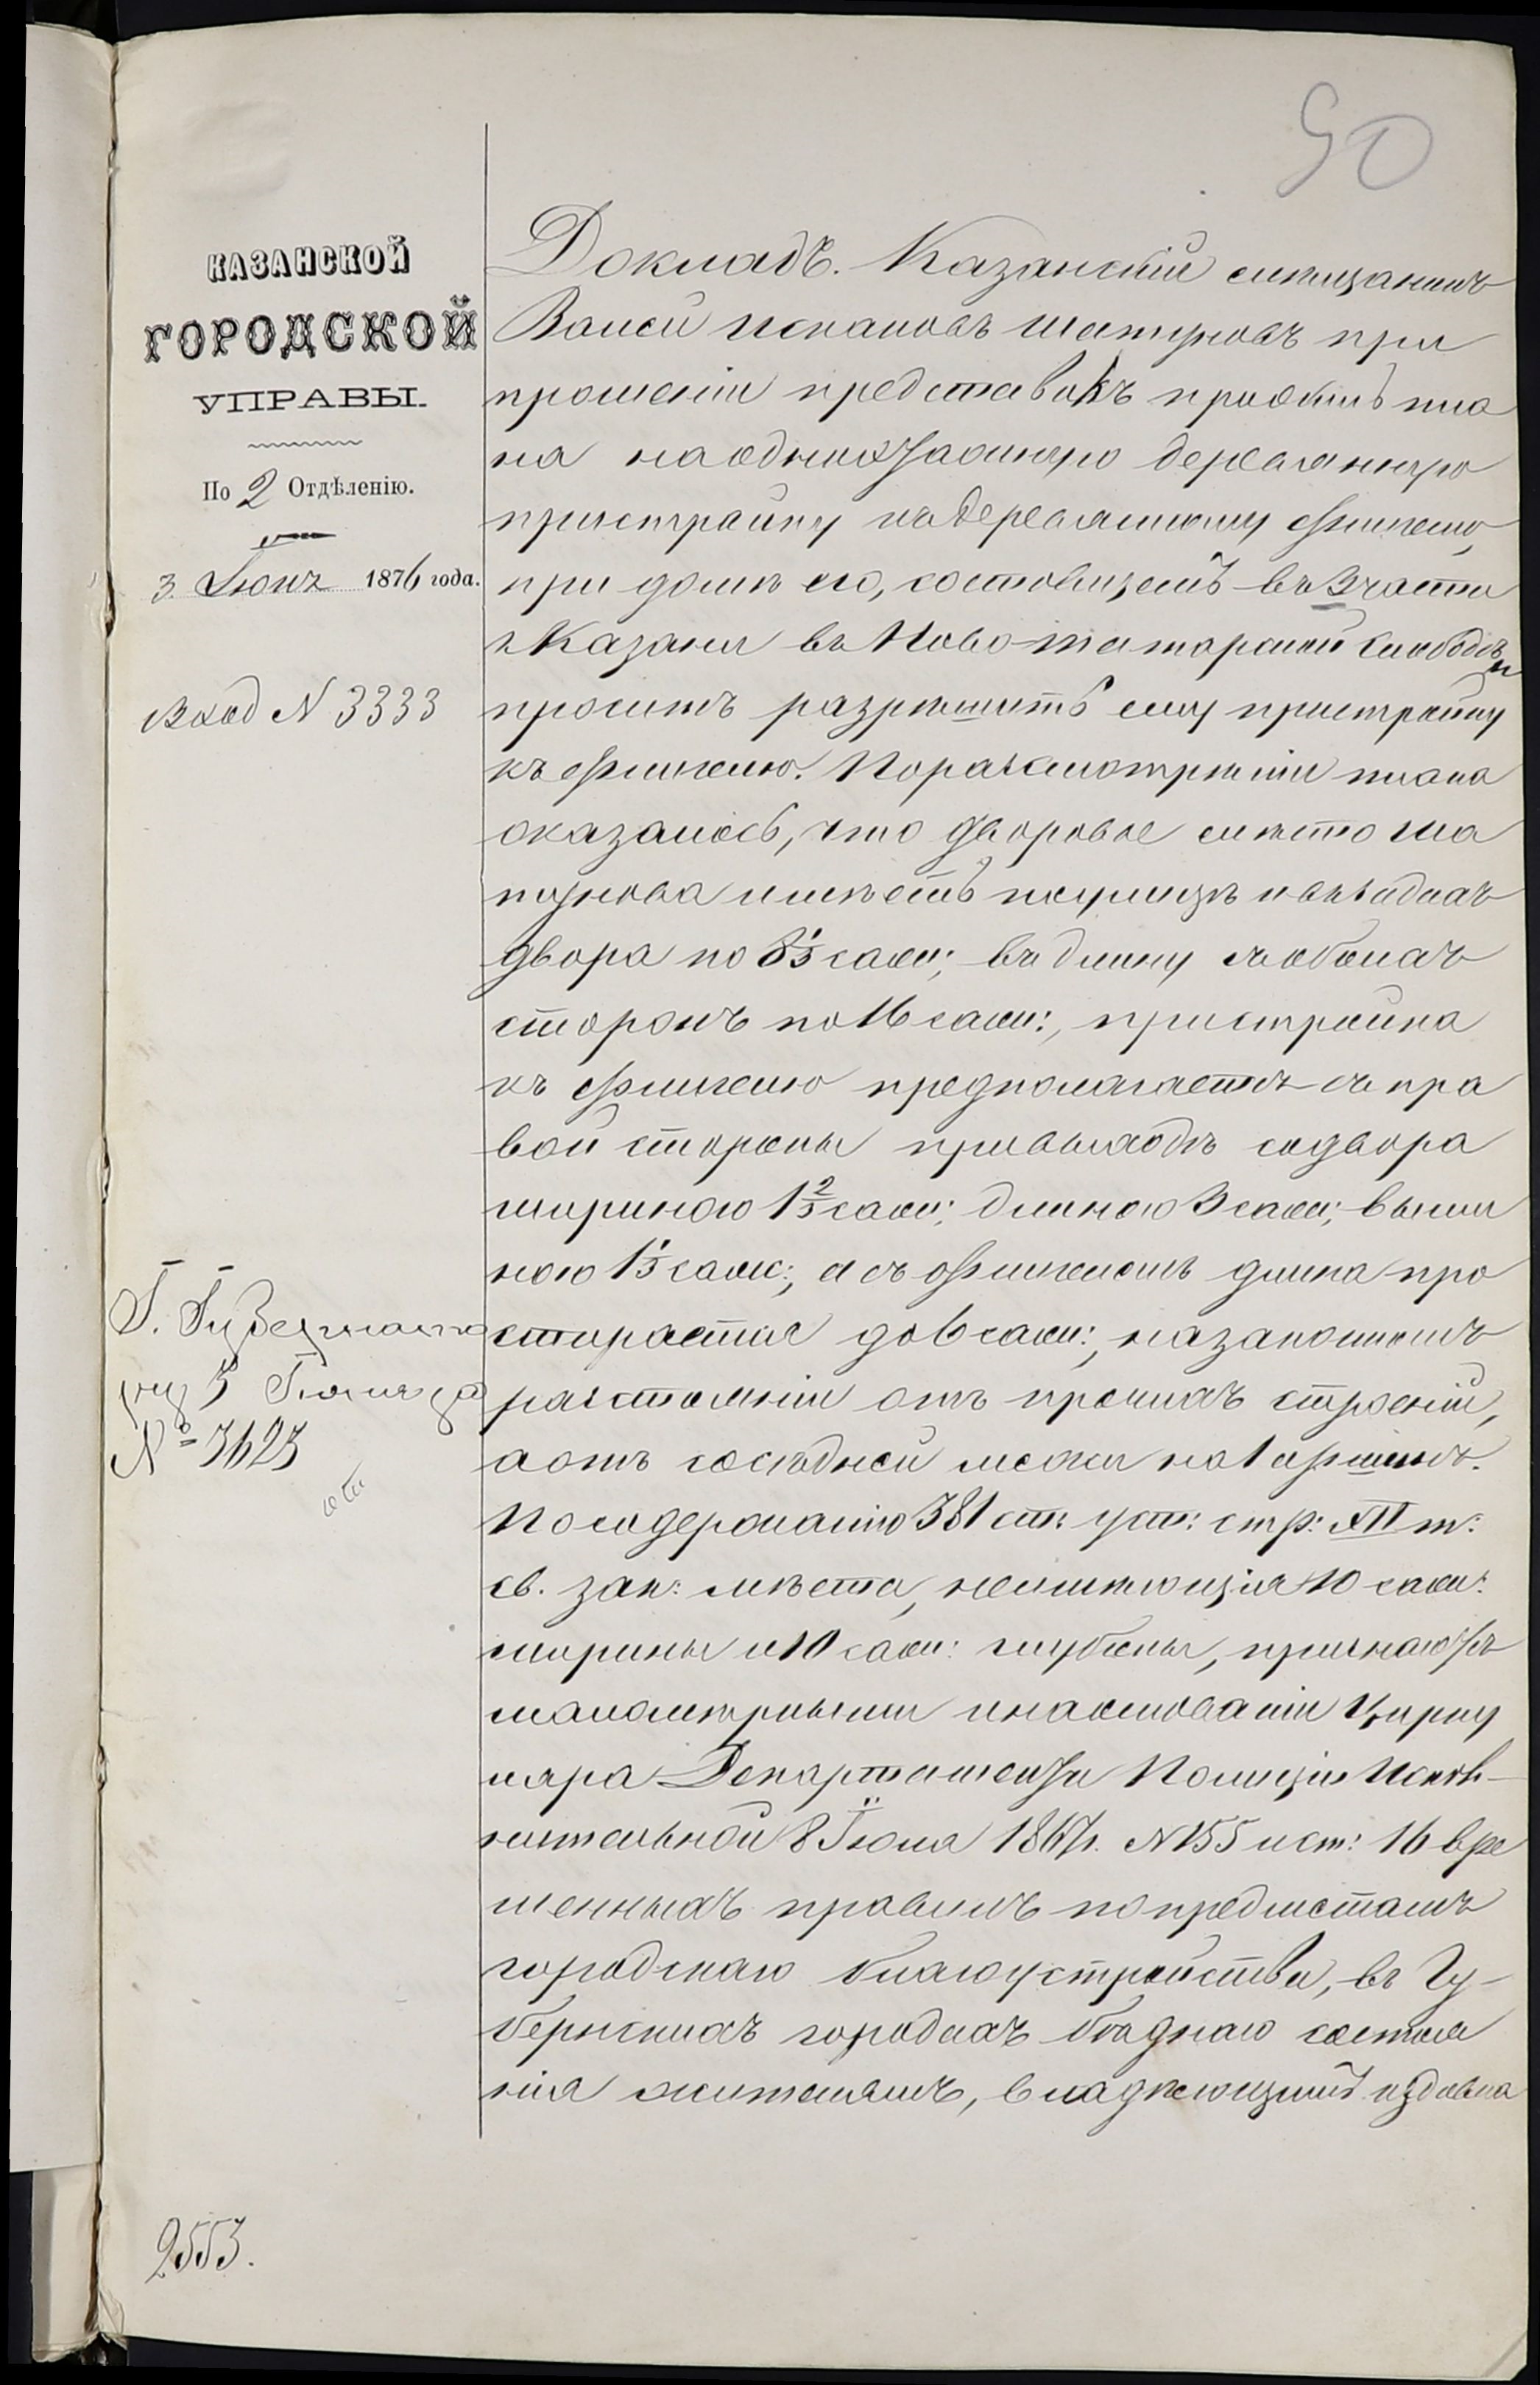 90
КАЗАНСКОЙ
ГОРОДСКОЙ
УПРАВЫ.
По 2 Отдѣленію.
3 Іюня 1876 года.
Вход N 3333
Г. Губернато
ру 5 Іюня за
№ 3623
2553.
Докладъ. Казанскій мѣщанинъ
Валей Искаковъ Шатуновъ при
прошеніи представилъ проэктъ пла
на на одноэтажную деревянную
пристройку къ деревянному флигелю,
при домѣ его, состоящемъ въ 3 части
г. Казани въ Ново-татарской Слободѣ и
проситъ разрѣшить ему пристройку
къ флигелю. По разсмотрѣніи плана
оказалось, что дворовое мѣсто Ша
тунова имѣетъ по улицѣ и въ задахъ
двора по 8 1/3 саж:, въ длину съ обоихъ
сторонъ по 16 саж:, пристройка
къ флигелю предполагается съ пра
вой стороны при въѣздѣ со двора
шириною 1 2/3 саж: длиною 3 саж:, выши
ною 1 1/3 саж:, а съ флигелемъ длина про
стирается до 6 саж:, на законномъ
разстояніи отъ прочихъ строеній,
а отъ сосѣдней межи на 1 аршинъ.
По содержанію 381 ст: уст: стр: XII т:
св. зак: мѣста, неимѣющія 10 саж:
ширины и 10 саж: глубины, признаются
маломѣрными и на основаніи Цирку
ляра Департамента Полиціи Испол-
нительной 8 Іюля 1867 г. N 155 и ст: 16 вре
менныхъ правилъ по предметамъ
городскаго благоустройства, въ Гу-
бернскихъ городахъ бѣднаго состоя
нія жителямъ, владѣющимъ издавна